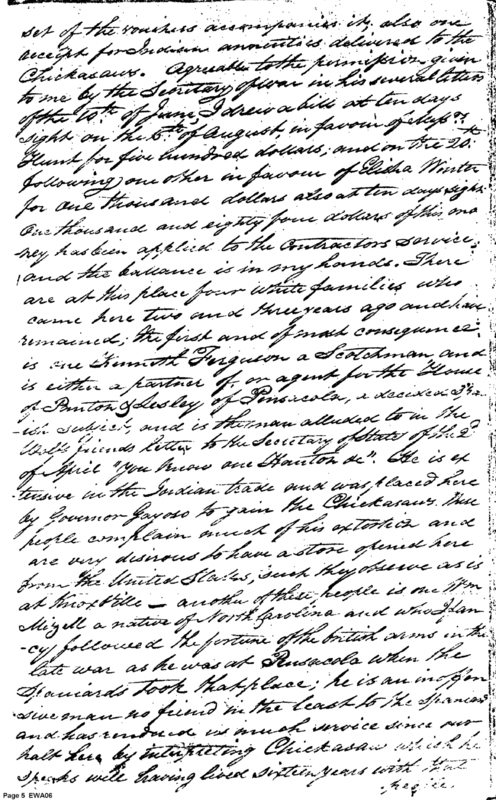 set of the vouchers accompanies it, also one
receipt for Indian annuities delivered to the
Chickasaws. Agreeable to the permission given
to me by the Secretary of war in his several letters
of the 10th of June, I drew a bill at ten days
sight on the 6th of August in favour of Messrs
Hunt for five hundred dollars; and on the 20th
following) one other in favour of Elisha Winter
for one thousand dollars also at ten days sight
one thousand and eighty four dollars of this mo
ney has been applied to the Contractors service,
and the ballance is in my hands. There
are at this place four white families who
came here two and three years ago and have
remained; the first and of most consequence
is one Kenneth Ferguson a Scotchman and
is either a partner of, or agent for the House
of Panton & Lesley of Pensacola, a decided Spa
ish subject, and is the man alluded to in the
friends letter to the Secretary of State of the 2d
of April "you know one Panton &c". He is ex
tensive in the Indian trade and was placed here
by Governor Gayoso to gain the Chickasaws. These
people complain much of his extortion and
are very disirous to have a store opened here
from the United States, such they observe as is
at KnoxVille — another of these people is one Wm
Mizell a native of North Carolina and who I fan
-cy followed the fortune of the british arms in the
late war as he was at Pensacola when the
Spaniards took that place; he is an inoffen
sive man no friend in the least to the Spaniards
and has rendered us much service since our
halt here by interpreting Chickasaw which he
speaks well having lived sixteen years with that
people.
Page 5 EWA06